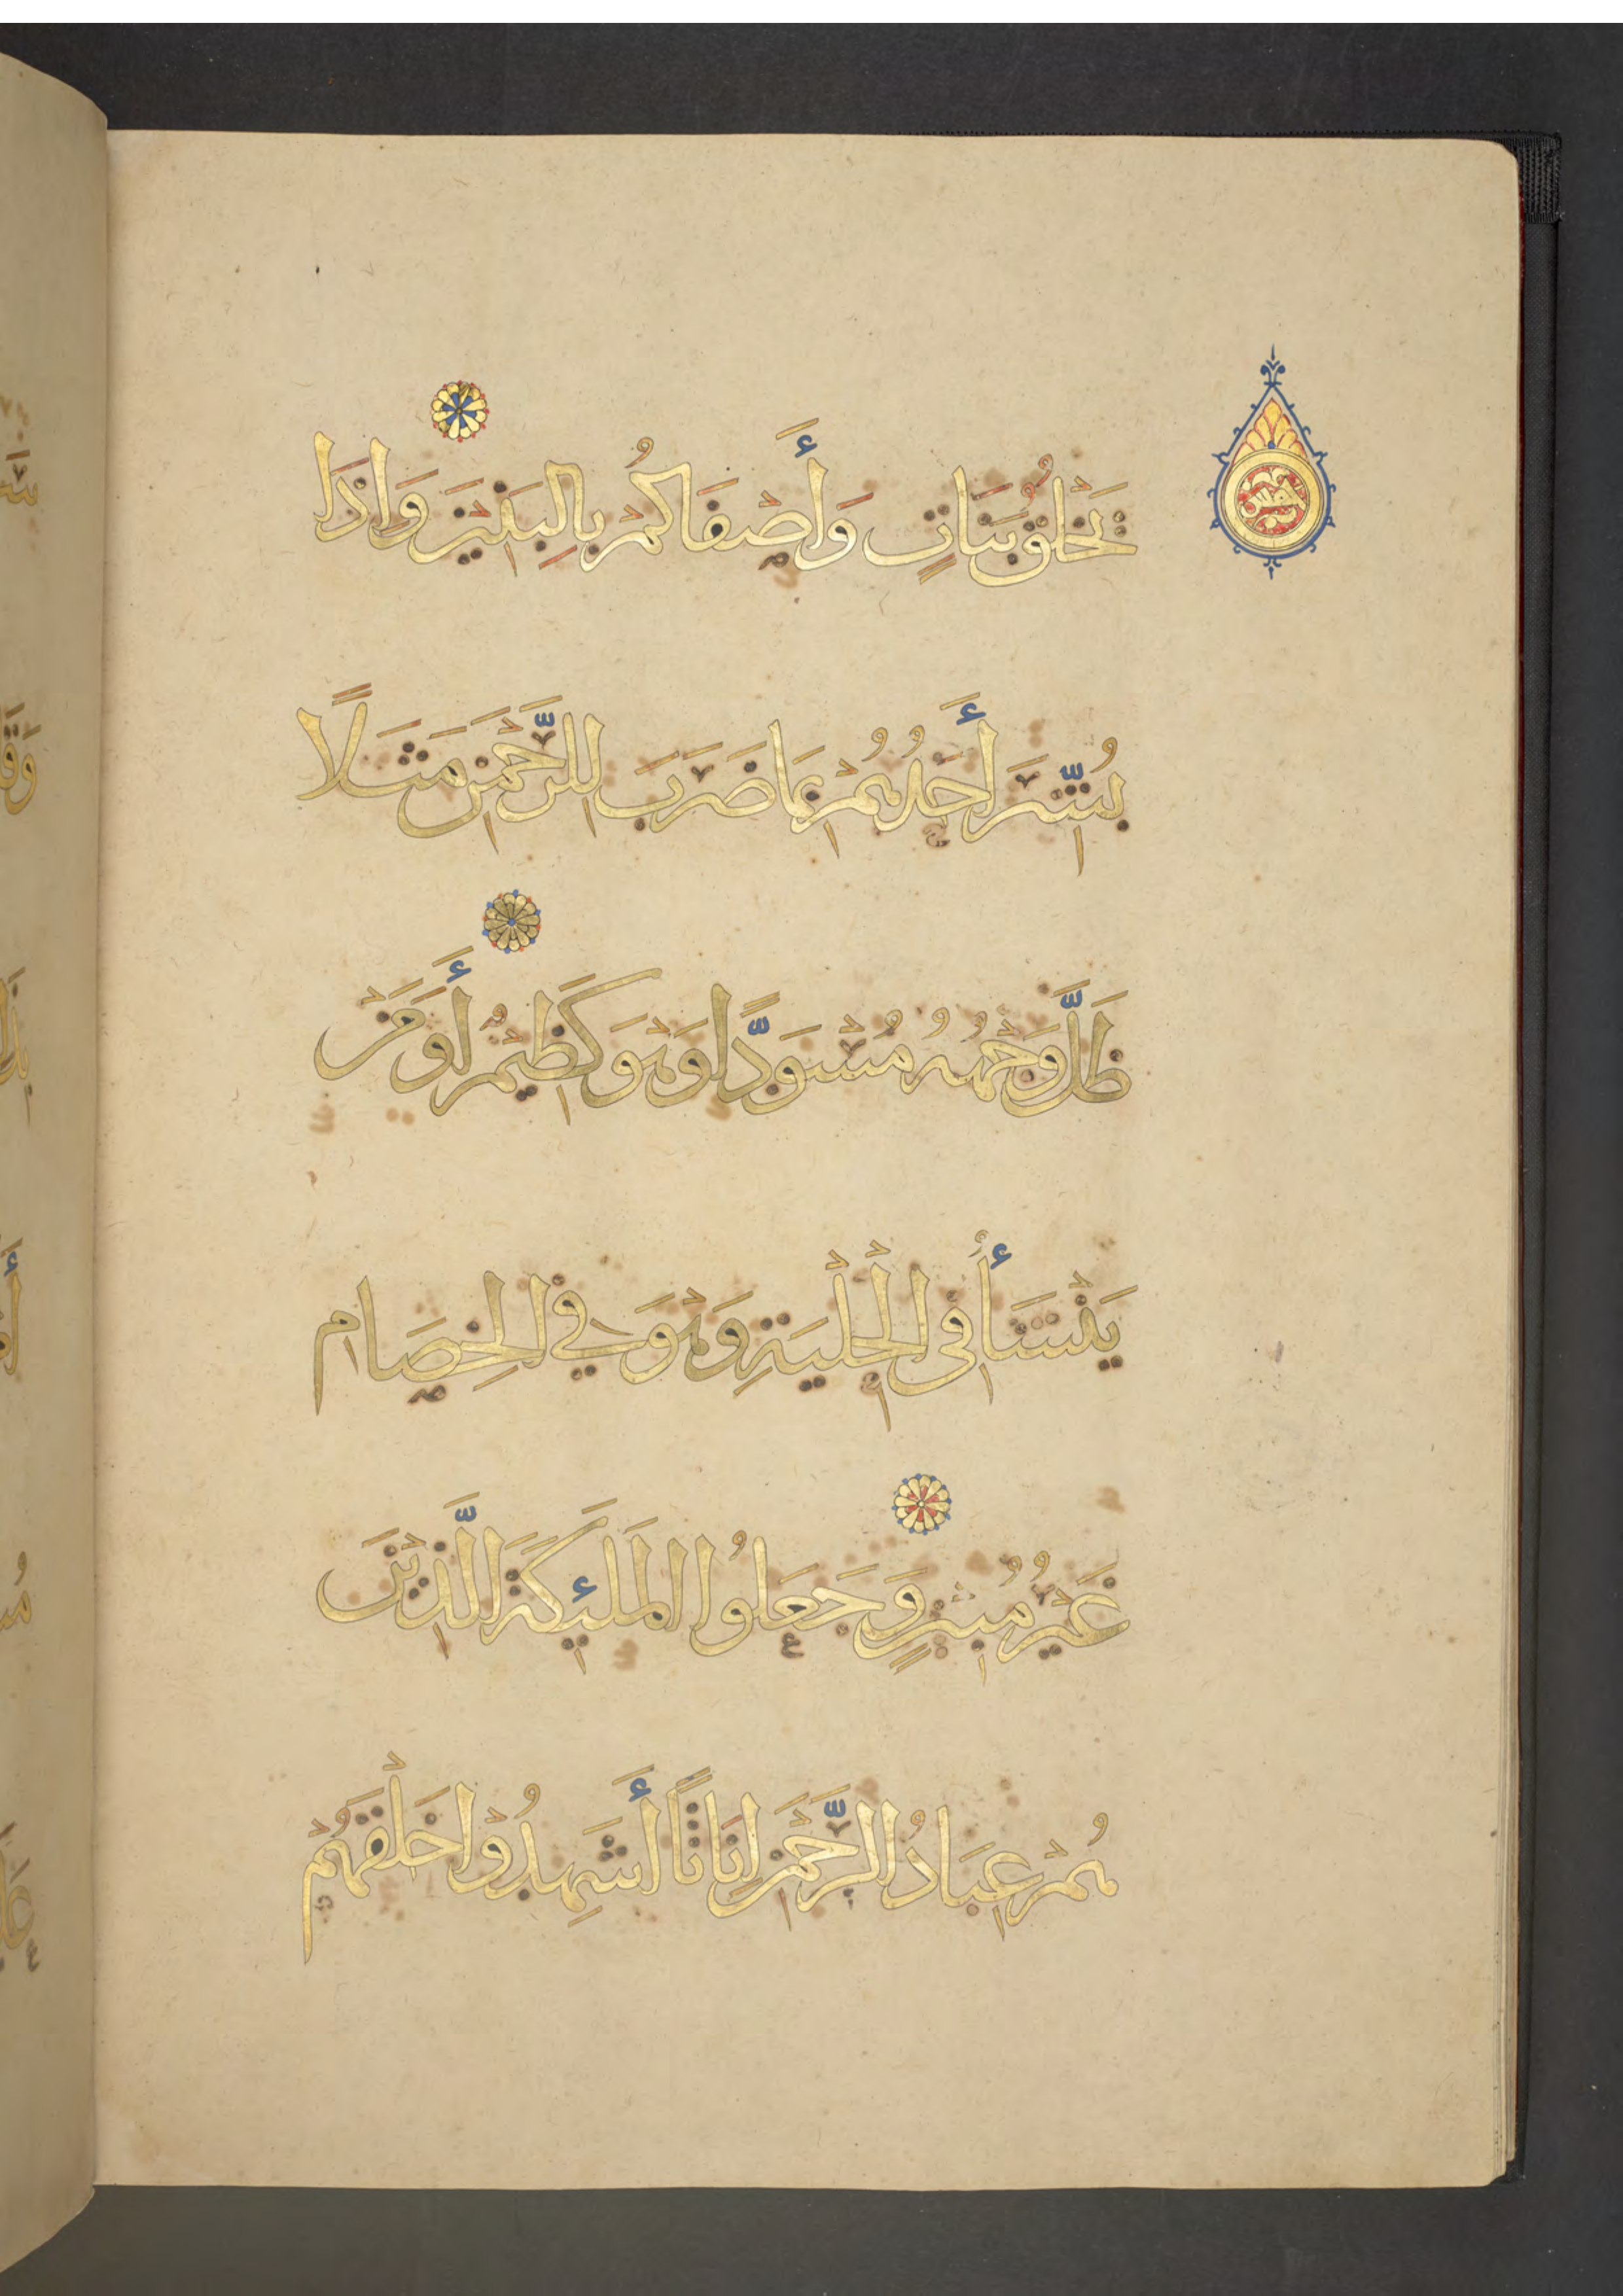 يَخْلُقُ بَنَاتٍ وَأَصْفَاكُمْ بِالْبَنِينَ وَإِذَا
بُشِّرَ أَحَدُهُمْ بِمَا ضَرَبَ لِلرَّحْمَنِ مَثَلًا
ظَلَّ وَجْهُهُ مُسْوَدًّا وَهُوَ كَظِيمٌ أَوَمَنْ
يَنْشَأُ فِي الْحِلْيَةِ وَهُوَ فِي الْخِصَامِ
غَيْرُ مُبِينٍ وَجَعَلُوا الْمَلَئِكَةَ الَّذِينَ
هُمْ عِبَادُ الرَّحْمَنِ إِنَاثًا أَشَهِدُوا خَلْقَهُمْ